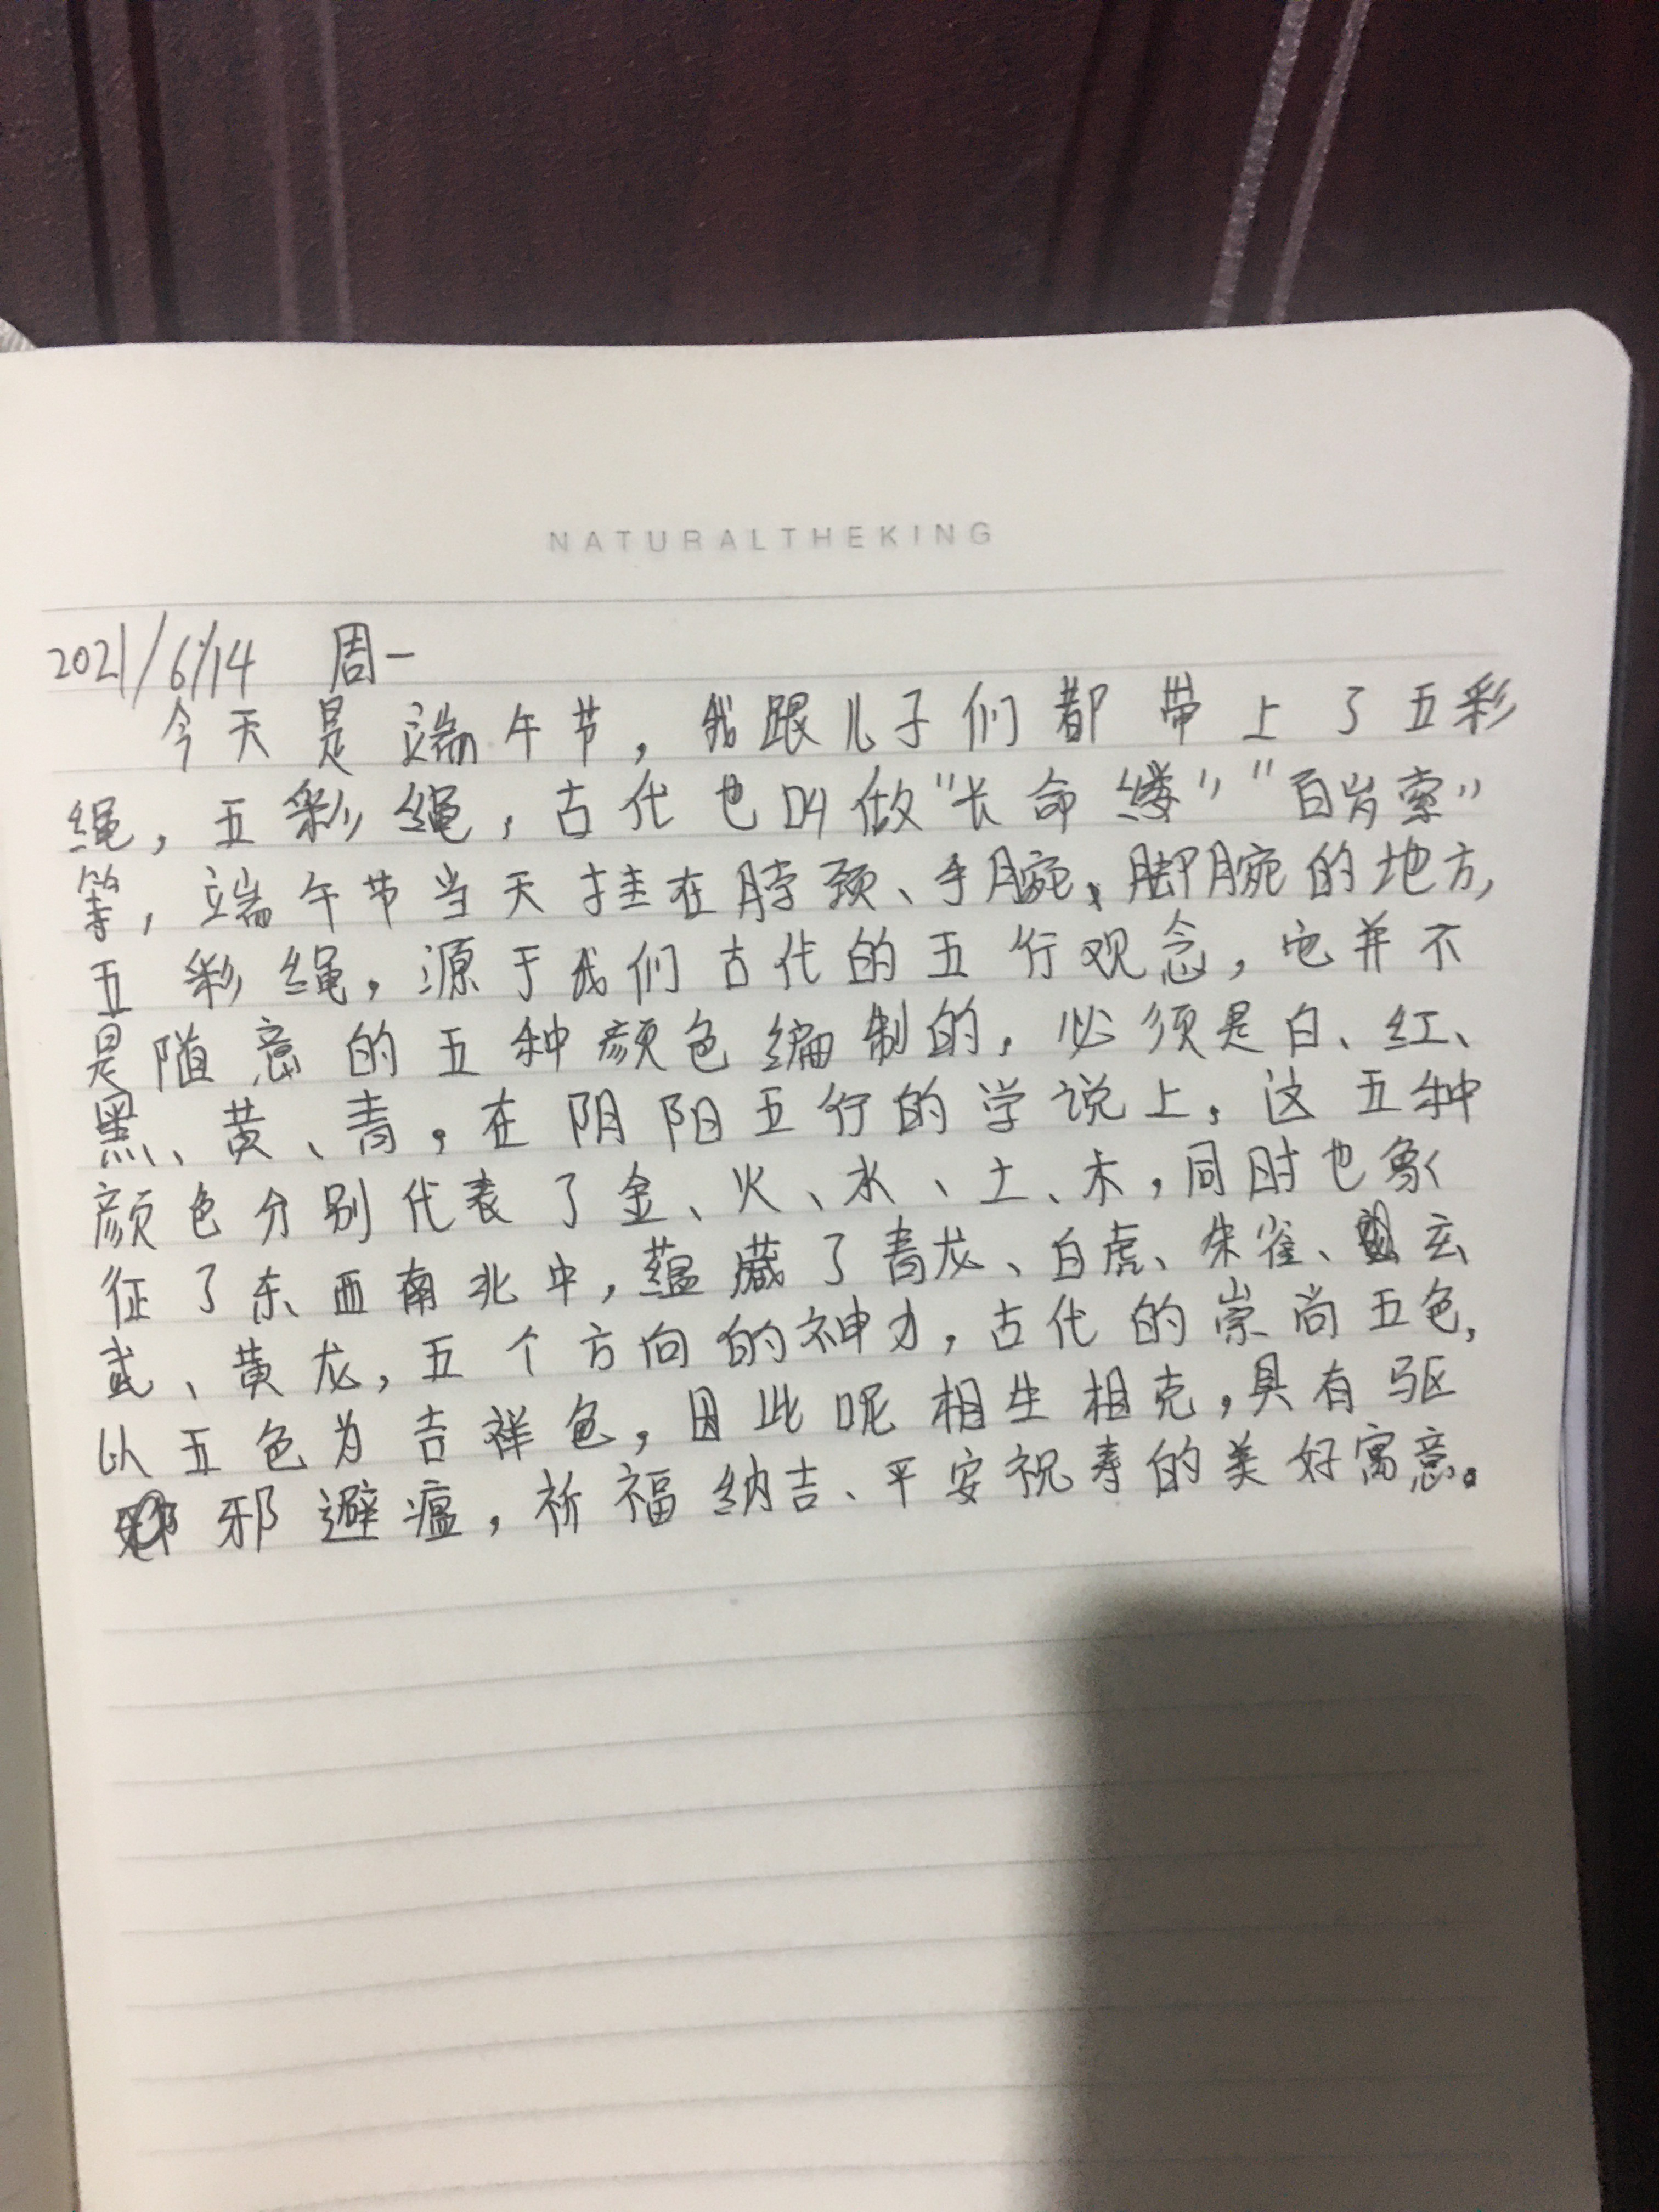 NATURALTHEKING
2021/6/14 周一
今天是端午节，我跟儿子们都带上了五彩
绳，五彩绳，古代也叫做“长命缕”“百岁索”
等，端午节当天挂在脖颈、手腕、脚腕的地方，
五彩绳，源于我们古代的五行观念，它并不
是随意的五种颜色编制的，必须是白、红、
黑、黄、青，在阴阳五行的学说上，这五种
颜色分别代表了金、火、水、土、木，同时也象
征了东西南北中，蕴藏了青龙、白虎、朱雀、玄
武、黄龙，五个方向的神力，古代的崇尚五色，
以五色为吉祥色，因此呢相生相克，具有驱
邪避瘟，祈福纳吉、平安祝寿的美好寓意。